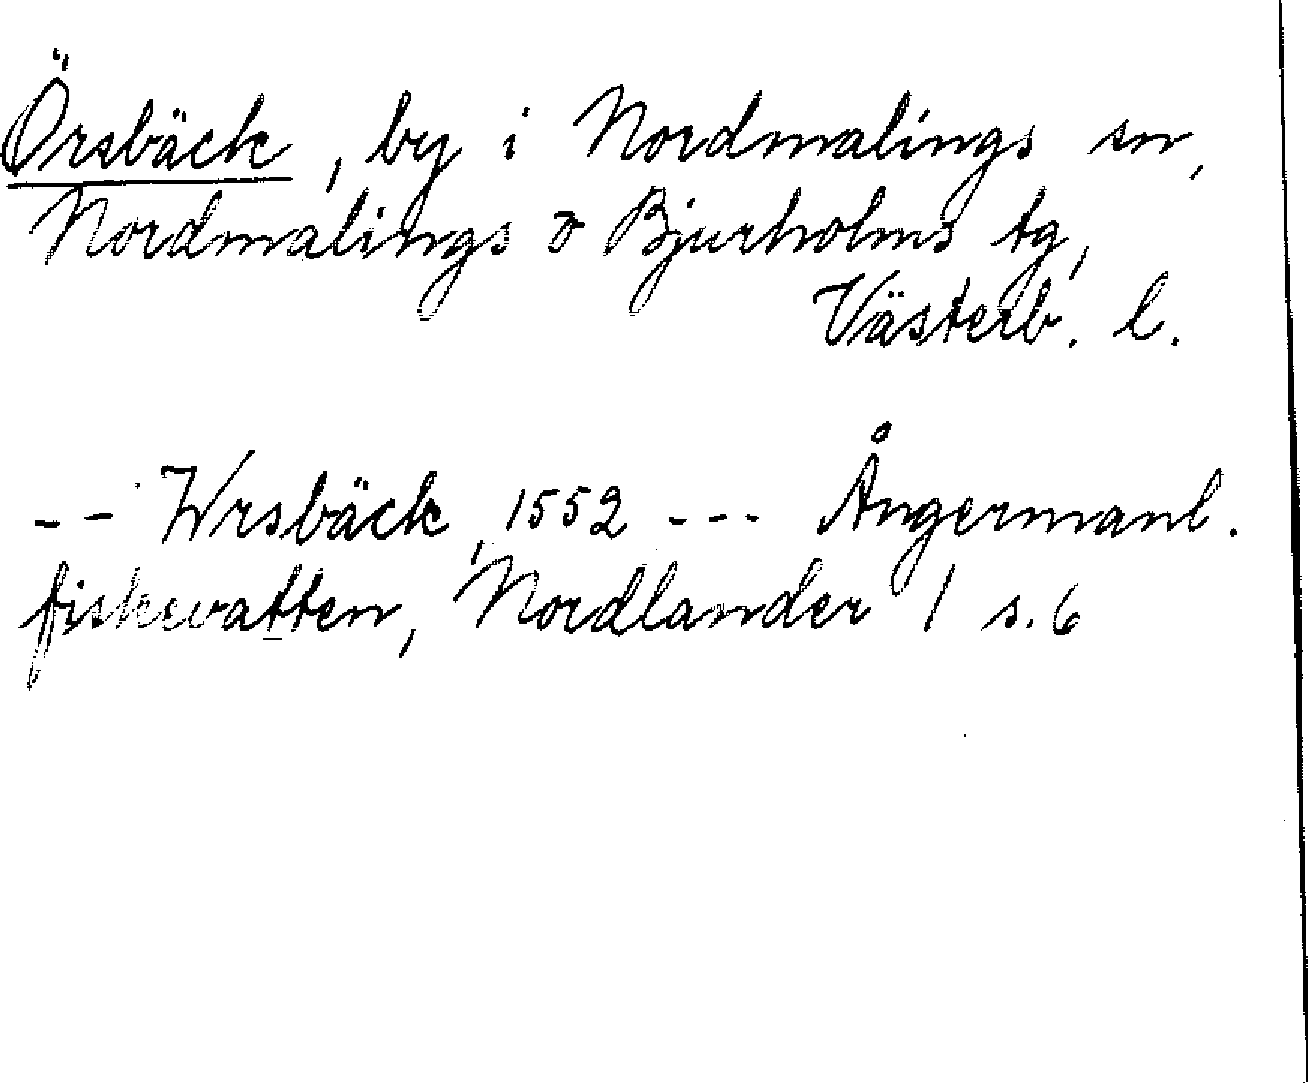 Örsbäck, by i Nordmalings sn,
Nordmalings o Bjurholms tg,
Västerb. l.
-- Wrsbäck, 1552 --- Ångermanl.
fiskevatten, Nordlander 1 s. 6